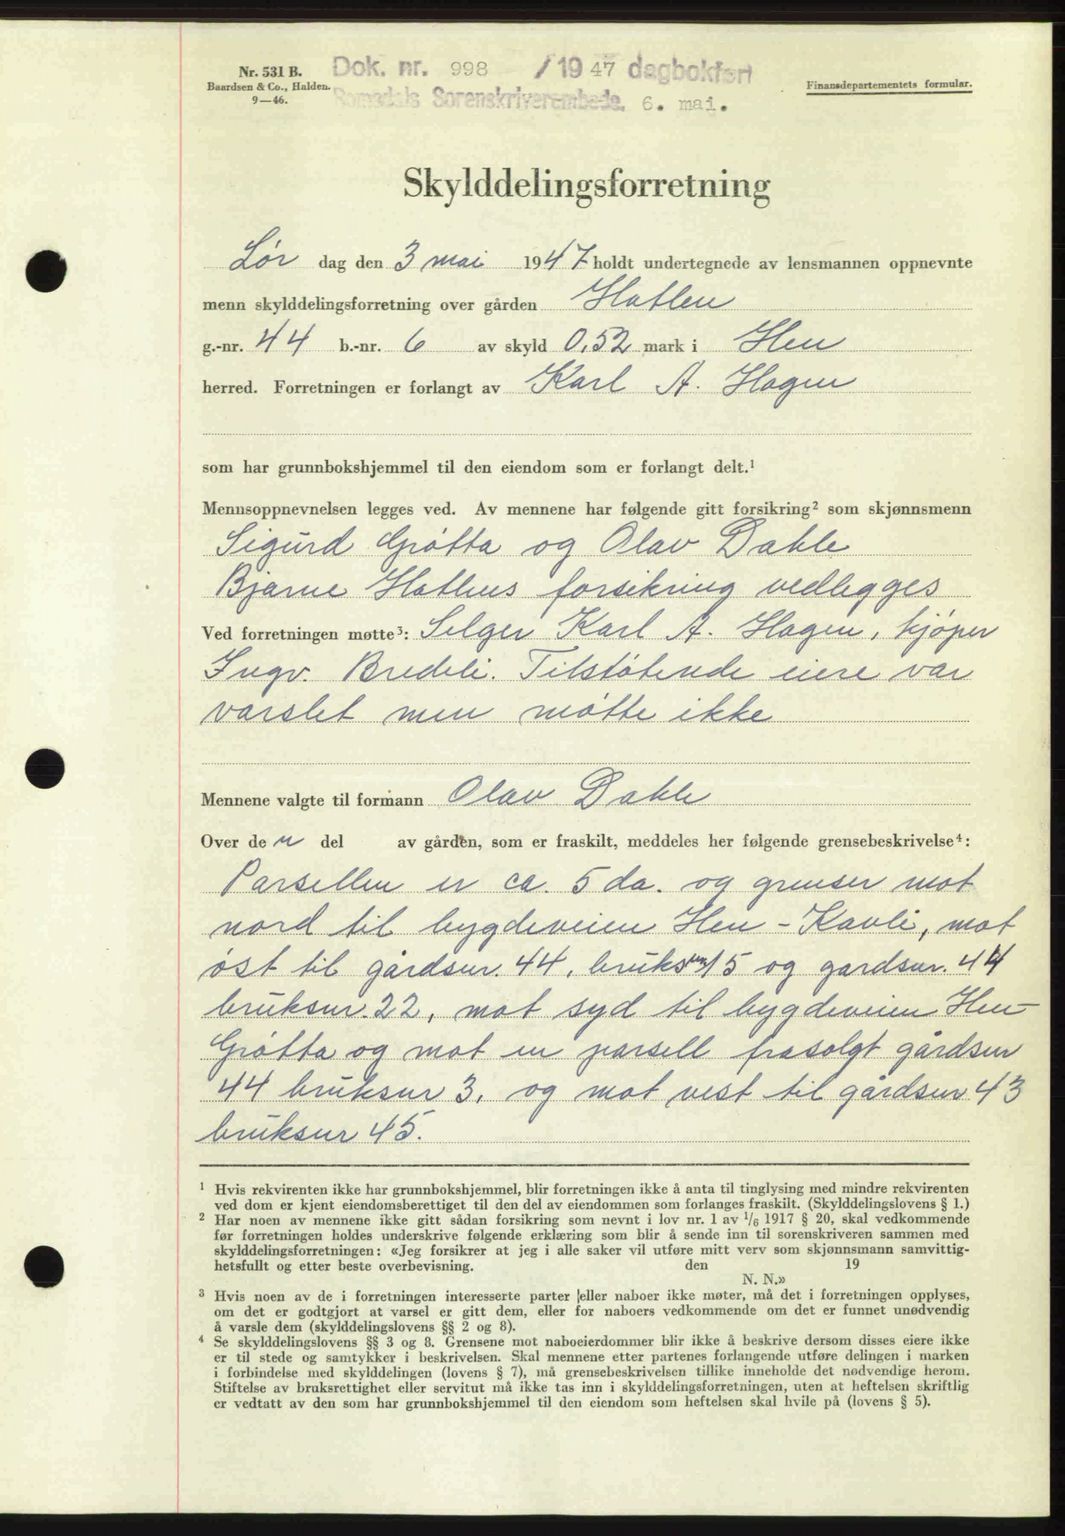 Nr. 531 B.
Baardsen & Co., Halden.
9—46.
Dok. nr. 998 /1947 dagbokført
Romsdals Sorenskriverembede. 6. mai.
Finansdepartementets formular.
Skylddelingsforretning
Lør dag den 3 mai 1947 holdt undertegnede av lensmannen oppnevnte
menn skylddelingsforretning over gården Hatlen
g.-nr. 44 b.-nr. 6 av skyld 0,52 mark i Hen
herred. Forretningen er forlangt av Karl A. Hagen
som har grunnbokshjemmel til den eiendom som er forlangt delt.¹
Mennsoppnevnelsen legges ved. Av mennene har følgende gitt forsikring² som skjønnsmenn
Sigurd Grøtta og Olav Dahle
Bjarne Hatlens forsikring vedlegges
Ved forretningen møtte³: Selger Karl A. Hagen, kjøper
Ingv. Bredeli. Tilstøtende eiere var
varslet men møtte ikke
Mennene valgte til formann Olav Dahle
Over de n del av gården, som er fraskilt, meddeles her følgende grensebeskrivelse⁴:
Parsellen er ca. 5 da. og grenser mot
nord til bygdeveien Hen - Kavli, mot
øst til gårdsnr. 44, bruksnr 15 og gardsnr. 44
bruksnr. 22, mot syd til bygdeveien Hen-
Grøtta og mot en parsell frasolgt gårdsnr
44 bruksnr 3, og mot vest til gårdsnr 43
bruksnr 45.
¹ Hvis rekvirenten ikke har grunnbokshjemmel, blir forretningen ikke å anta til tinglysing med mindre rekvirenten
ved dom er kjent eiendomsberettiget til den del av eiendommen som forlanges fraskilt. (Skylddelingslovens § 1.)
² Har noen av mennene ikke gitt sådan forsikring som nevnt i lov nr. 1 av 1/6 1917 § 20, skal vedkommende
før forretningen holdes underskrive følgende erklæring som blir å sende inn til sorenskriveren sammen med
skylddelingsforretningen: «Jeg forsikrer at jeg i alle saker vil utføre mitt verv som skjønnsmann samvittig-
hetsfullt og etter beste overbevisning. den 19
N. N.»
³ Hvis noen av de i forretningen interesserte parter eller naboer ikke møter, må det i forretningen opplyses,
om det er godtgjort at varsel er gitt dem, eller for naboers vedkommende om det er funnet unødvendig
å varsle dem (skylddelingslovens §§ 2 og 8).
⁴ Se skylddelingslovens §§ 3 og 8. Grensene mot naboeierdommer blir ikke å beskrive dersom disses eiere ikke
er til stede og samtykker i beskrivelsen. Skal mennene etter partenes forlangende utføre delingen i marken
i forbindelse med skylddelingen (lovens § 7), må grensebeskrivelsen tillike inneholde det nødvendige herom.
Stiftelse av bruksrettighet eller servitut må ikke tas inn i skylddelingsforretningen, uten at heftelsen skriftlig
er vedtatt av den som har grunnbokshjemmel til den eiendom som heftelsen skal hvile på (lovens § 5).